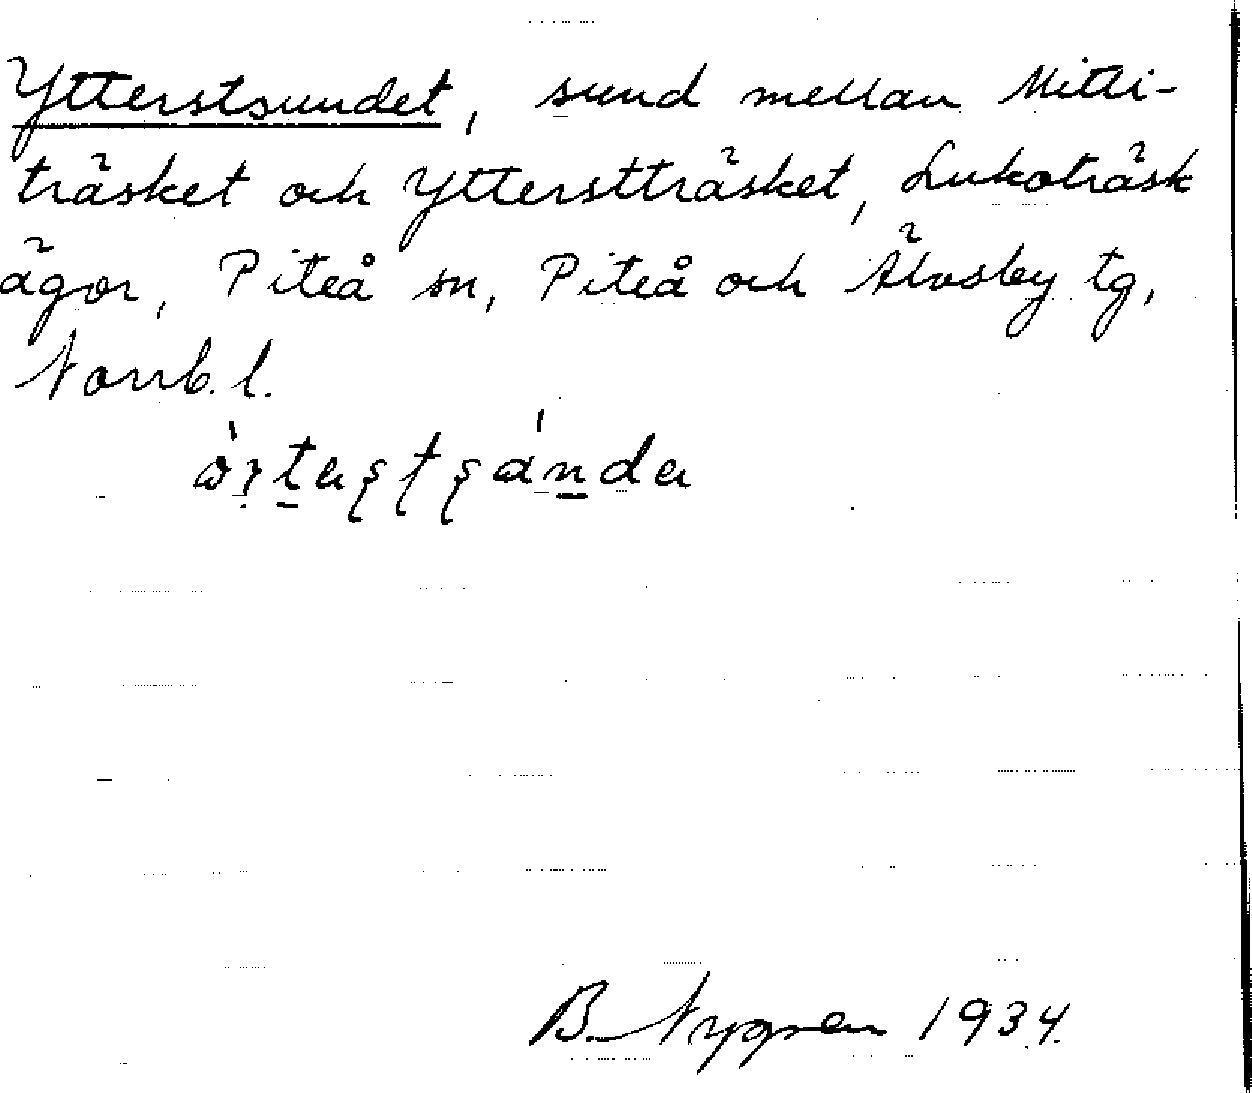 Ytterstsundet, sund mellan Mitti-
träsket och Ytterstträsket, Lukoträsk
ägor, Piteå sn, Piteå och Älvsby tg,
Norrb. l.
B. Nygren 1934.